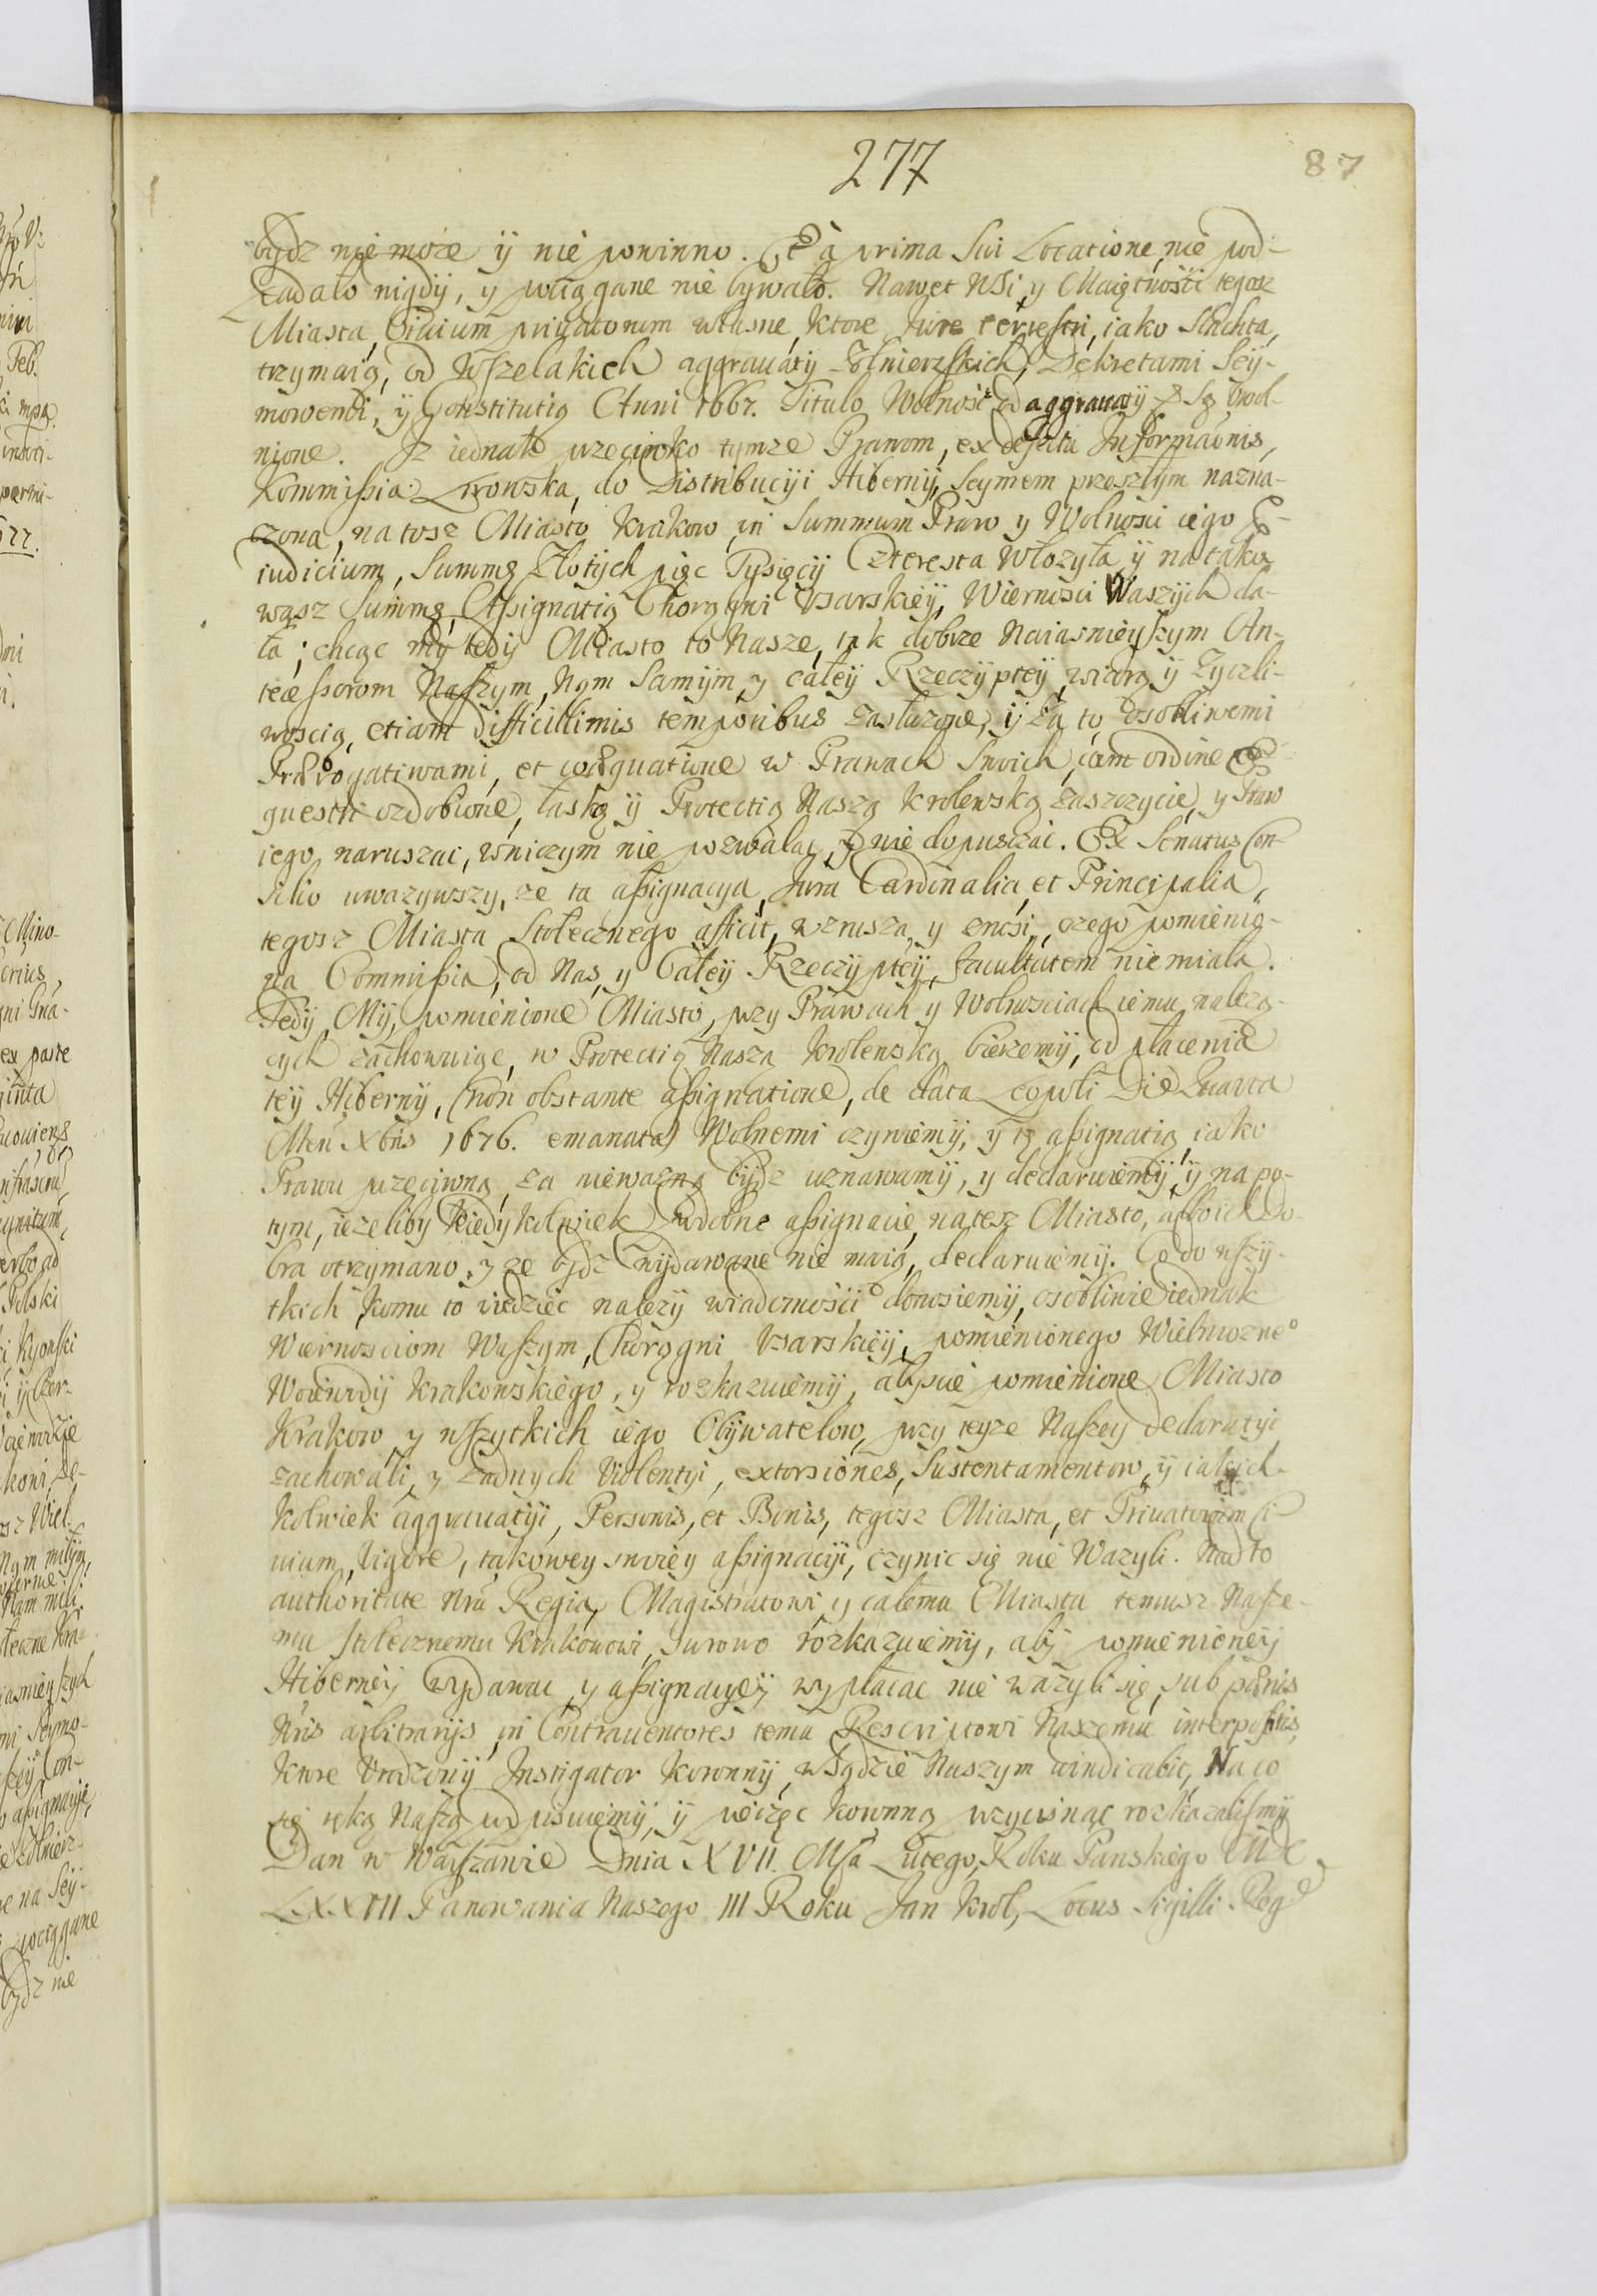 277
87
bydz nie może ÿ nie powinno. Et à prima Sui Locatione, nie pod-
padało nigdÿ, y pociągane nie bywało. Nawet WSi, y Maiętnosti tegosz
Miasta, Civium privatorum własne, ktore Jure terrestri, iako Slachta,
trzymaią, od wszelakich aggrauatÿ Zołnierzskich, Dekretami Seÿ-
mowemi, ÿ Constitutią Anni 1667. Titulo Wolność od aggrauatÿ Są uwol-
nione. Iz iednak przeciwko tymze Prawom, ex defectu Informaōnis,
Kommissia Lwowska, do Distribucÿi Hibernÿ, Seymem przeszłym nazna-
czona, na tosz Miasto Krakow in Summum Praw y Wolnosci iego P-
iudicium, Summę Złotÿch pięc Tysięcÿ Czterysta włozyła ÿ na tako-
wąsz Summę, Assignatią Chorągwi Usarskieÿ, Wiernosci Waszÿch da-
ła; chcąc mÿ tedÿ Miasto to Nasze, tak dobrze Naiasnieyszym An-
tecessorom Naszym, Nąm Samÿm, y całeÿ Rzeczÿpteÿ, wiarą ÿ Zyczli-
woscią, etiam difficillimis temporibus zasłuzone, ÿ za to osobliwemi
Prærogatiwami, et coæquatione w Prawach Swoich, cum ordine E-
questri ozdobione, łaską ÿ Protectią Naszą Krolewską zaszczycic, y Praw
iego naruszac, wniczym nie pozwalac, y nie dopuszczac. Ex Senatus Con-
silio uwazywszy, ze ta assignacya, Jura Cardinalia, et Principalia,
tegosz Miasta Stołecznego afficit, wzrusza, y znosi, czego pomienio-
na Commissia, od Nas, y Całeÿ Rzeczÿpteÿ, facultatem nie miała.
Tedÿ Mÿ, pomienione Miasto, przy Prawach y Wolnosciach iemu należą-
cych zachowuiąc, w Protectią Naszą Krolewską bierzemÿ, od płacenia
teÿ Hibernÿ, (non obstante assignatione, de data Leopoli Die Quarta
Men Xbris 1676. emanata) Wolnemi czyniemÿ, ÿ tę assignatią iako
Prawu przeciwną, za niewazną bÿdz uznawamÿ, y declaruiemÿ, ÿ na po-
tym, iezeliby kiedykolwiek podobne assignacie, na tesz Miasto, albo ich Do-
bra otrzymano, y ze bydz wÿdawane nie maią, declaruiemÿ. Co do wszÿ-
tkich, komu to wiedziec nalezÿ wiadomosci donosiemÿ, osobliwie iednak
Wiernosciom Waszym, Chorągwi Usarskieÿ, pomienionego Wielmozne°
Woiewodÿ Krakowskiego, y rozkazuiemÿ, abyscie pomienione Miasto
Krakow y wszytkich iego Obÿwatelow, przy teyze Naszey declaratÿi
zachowali, y zadnych violentÿi, extorsiones, Sustentamentow, ÿ iakich-
kolwiek aggrauatÿi, Personis, et Bonis, tegosz Miasta, et Privatorum Ci-
uium, Vigore, takowey swoiey assignacÿi, czynic się nie Wazyli. Nad to
authoritate Nra Regia, Magistratowi y całemu Miastu temusz Nasze-
mu stołecznemu Krakowowi, surowo rozkazuiemÿ, abÿ pomienioneÿ
Hiberneÿ wydawac, y assignacyeÿ wypłacac nie wazyli się, sub pœnis
Nris arbitrarijs, in Contrauentores temu Rescriptowi Naszemu interpositis,
ktore Urodzonÿ Instigator Koronnÿ, w Sądzie Naszym vindicabit, Na co
się ręką Naszą podpisuiemÿ, ÿ pieczęc koronną przycisnąc rozkazalismÿ
Dan w Warszawie Dnia XVII. Msca Lutego, Roku Panskiego MDC
LXXVII Panowania Naszego III Roku Jan Krol, Locus Sigilli Reg